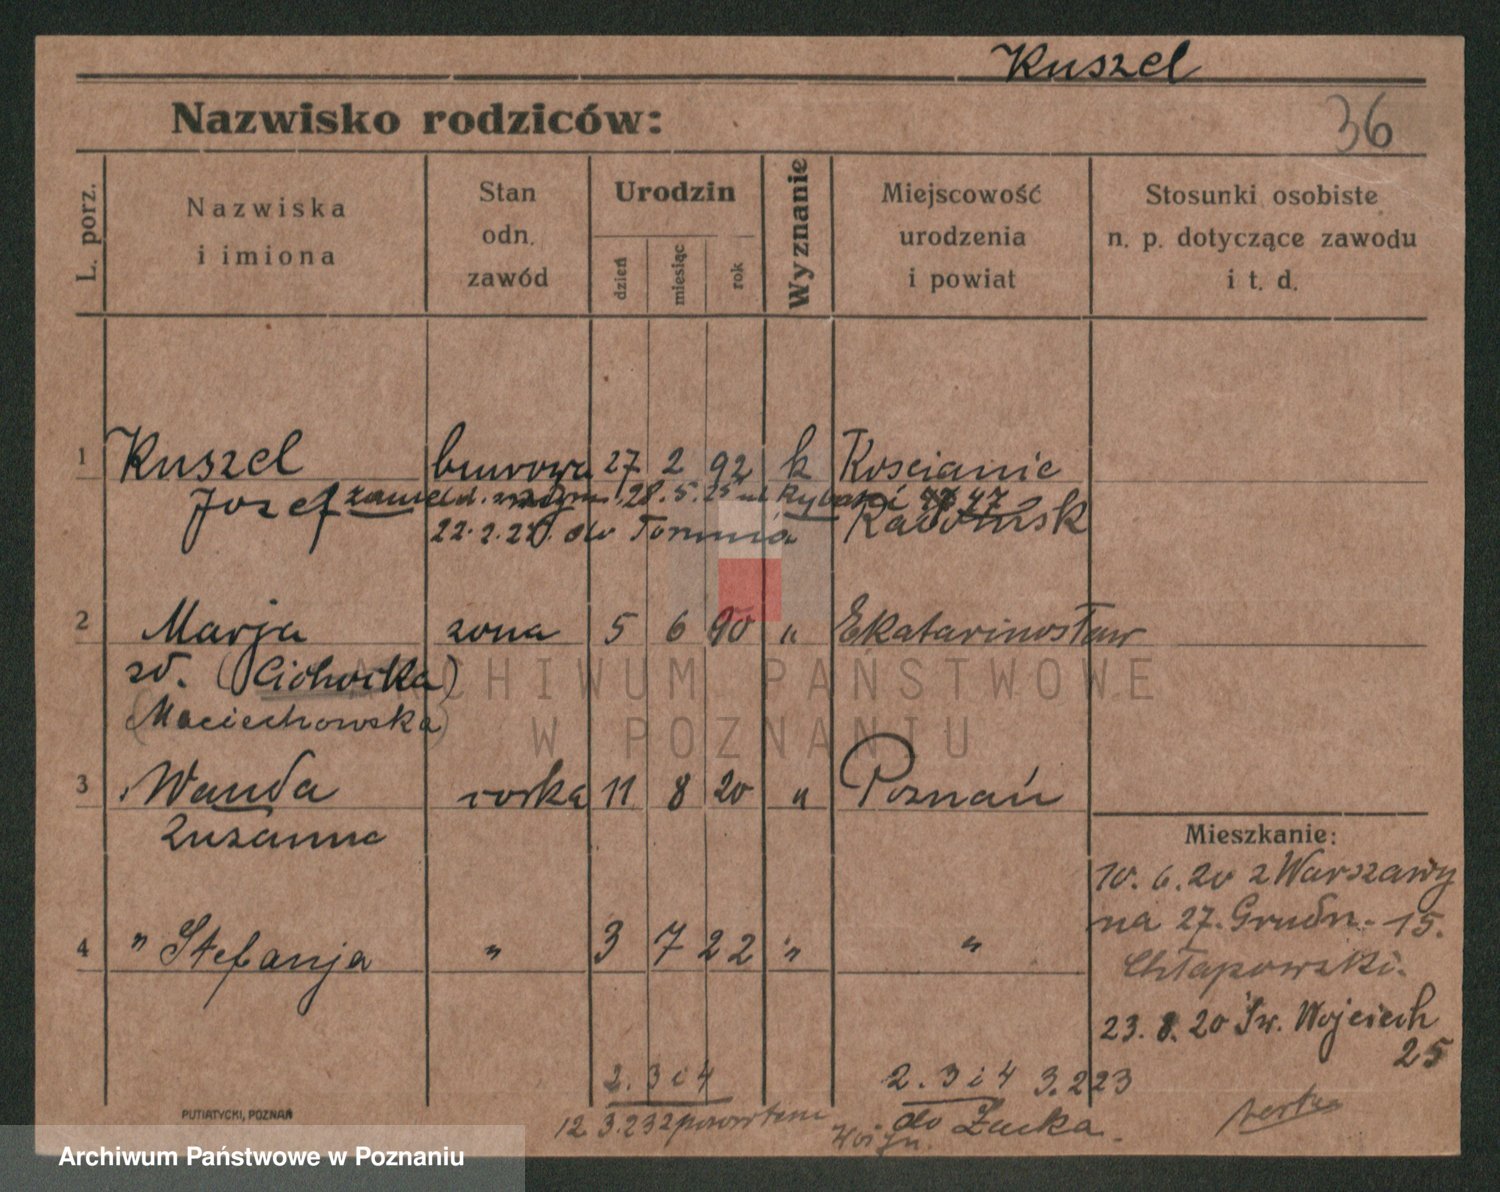 Kuszel
Nazwisko rodziców:
36
L. porz.
Nazwiska
i imiona
Stan
odn.
zawód
Urodzin
dzień
miesiąc
rok
Wyznanie
Miejscowość
urodzenia
i powiat
Stosunki osobiste
n. p. dotyczące zawodu
i t. d.
1 Kuszel 27 2 92 k Koscianie
Jozef 28.5.25 47
22.2.22 do Torunia Radomsk
2 Marja zona 5 6 90 " Ekatarinosław
zd. (Cichocka)
(Maciechowska)
3 Wanda corka 11 8 20 " Poznań
Zuzanna
4 " Stefanja " 3 7 22 " "
Mieszkanie:
10.6.20 z Warszawy
na 27. Grudn. 15.
Chłapowski.
23.8.20 Św. Wojciech
25
2. 3 i 4
12 3.23 z powrotem
2. 3 i 4 3.2 23
do Łucka.
PUTIATYCKI, POZNAŃ
ARCHIWUM PAŃSTWOWE
W POZNANIU
Archiwum Państwowe w Poznaniu